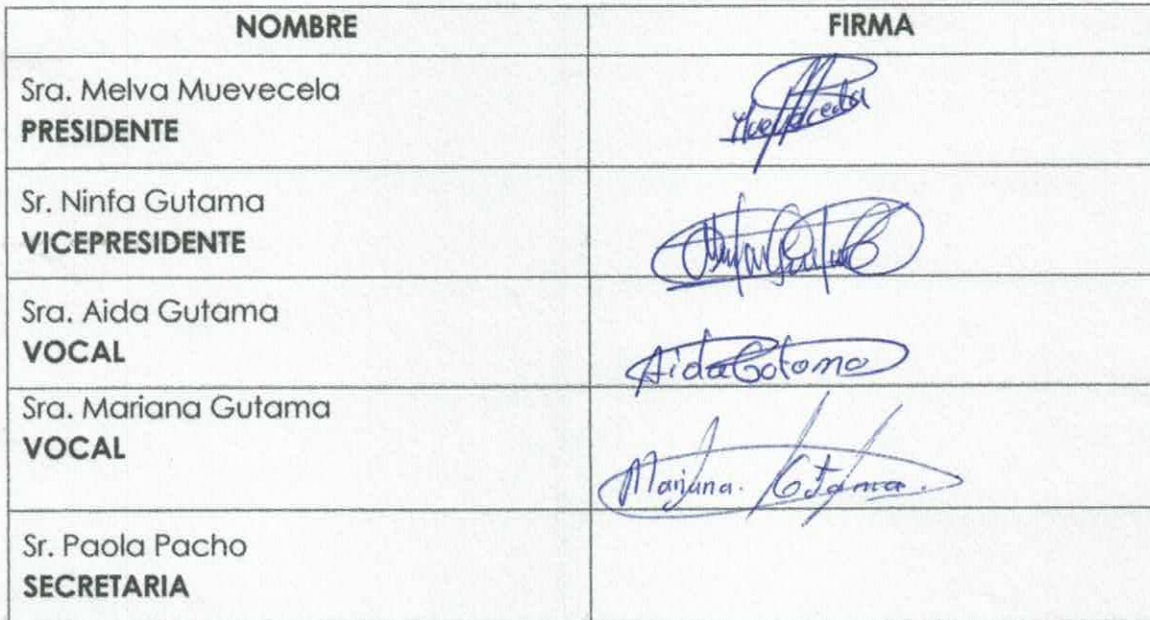 NOMBRE FIRMA
Sra. Melva Muevecela
PRESIDENTE
Sr. Ninfa Gutama
VICEPRESIDENTE
Sra. Aida Gutama
VOCAL
Aida Gotoma
Sra. Mariana Gutama
VOCAL
Mariana. Gtama.
Sr. Paola Pacho
SECRETARIA